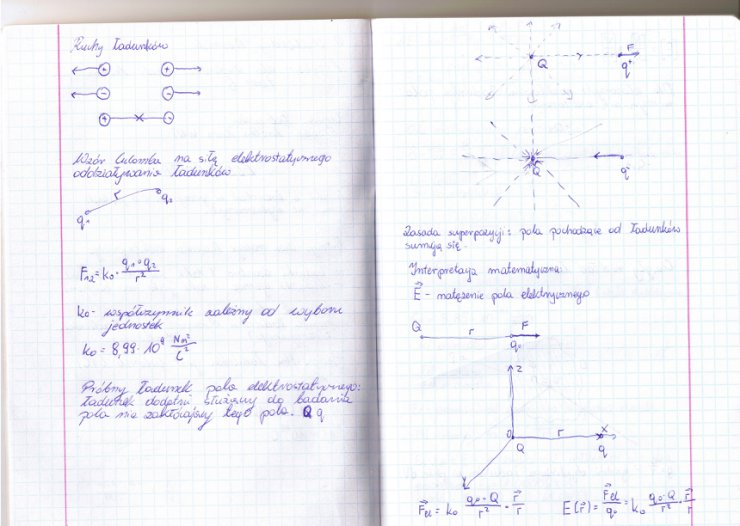 Ruchy ładunków
+ +
- -
+ -
Wzór Culomba na siłę elektrostatycznego
oddziaływania ładunków
r
q₁ q₂
F₁₂ = k₀ · q₁ · q₂ / r²
k₀ - współczynnik zależny od wyboru
jednostek
k₀ = 8,99 · 10⁹ Nm² / C²
Próbny ładunek pola elektrostatycznego:
ładunek dodatni służący do badania
pola nie zakłócający tego pola. Q q
F
Q q⁺
Q q⁻
Zasada superpozycji: pola pochodzące od ładunków
sumują się.
Interpretacja matematyczna
E⃗ - natężenie pola elektrycznego
Q r F⃗
q₀
z
0 r x
Q q
y
F⃗el = k₀ q₀ · Q / r² · r⃗ / r E(r⃗) = F⃗el / q₀ = k₀ q₀ · Q / r² · r⃗ / r